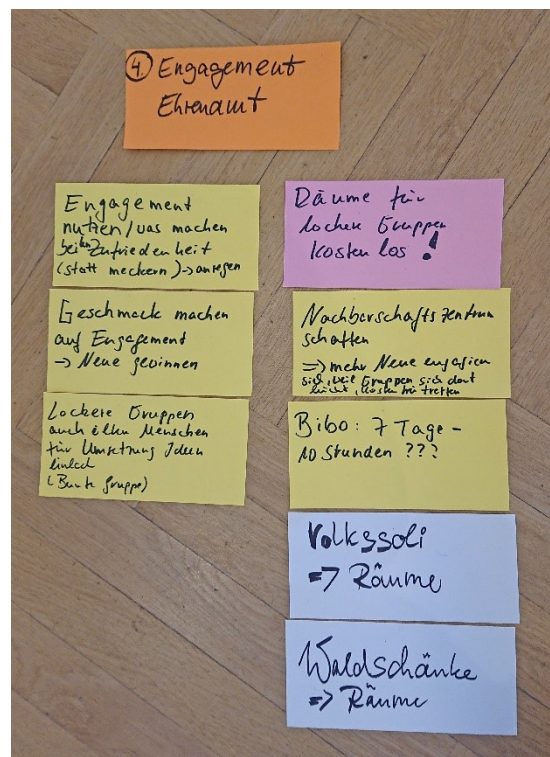 4. Engagement
Ehrenamt
Engagement
nutzen/was machen
bei Unzufriedenheit
(statt meckern) -> anregen
Geschmack machen
auf Engagement
-> Neue gewinnen
Lockere Gruppen
auch ält. Menschen
für Umsetzung Ideen
(Bunte Gruppe)
Räume für
locker Gruppen
kostenlos !
Nachbarschaftszentrum
schaffen
=> mehr Neue
sich, weil Gruppen sich dort
treffen
Bibo: 7 Tage -
10 Stunden ???
Volkssoli
=> Räume
Waldschänke
=> Räume